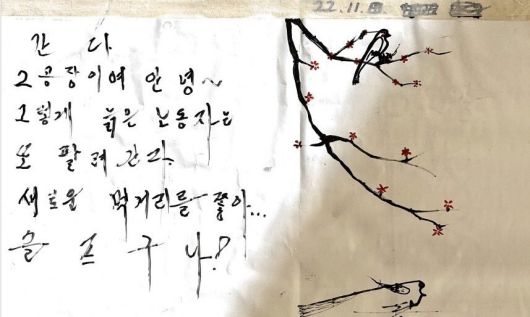 22.11.
간 다
2공장이여 안녕~
그렇게 늙은 노동자는
또 팔려 간다.
새로운 먹거리를 쫓아...
슬 프 구 나!